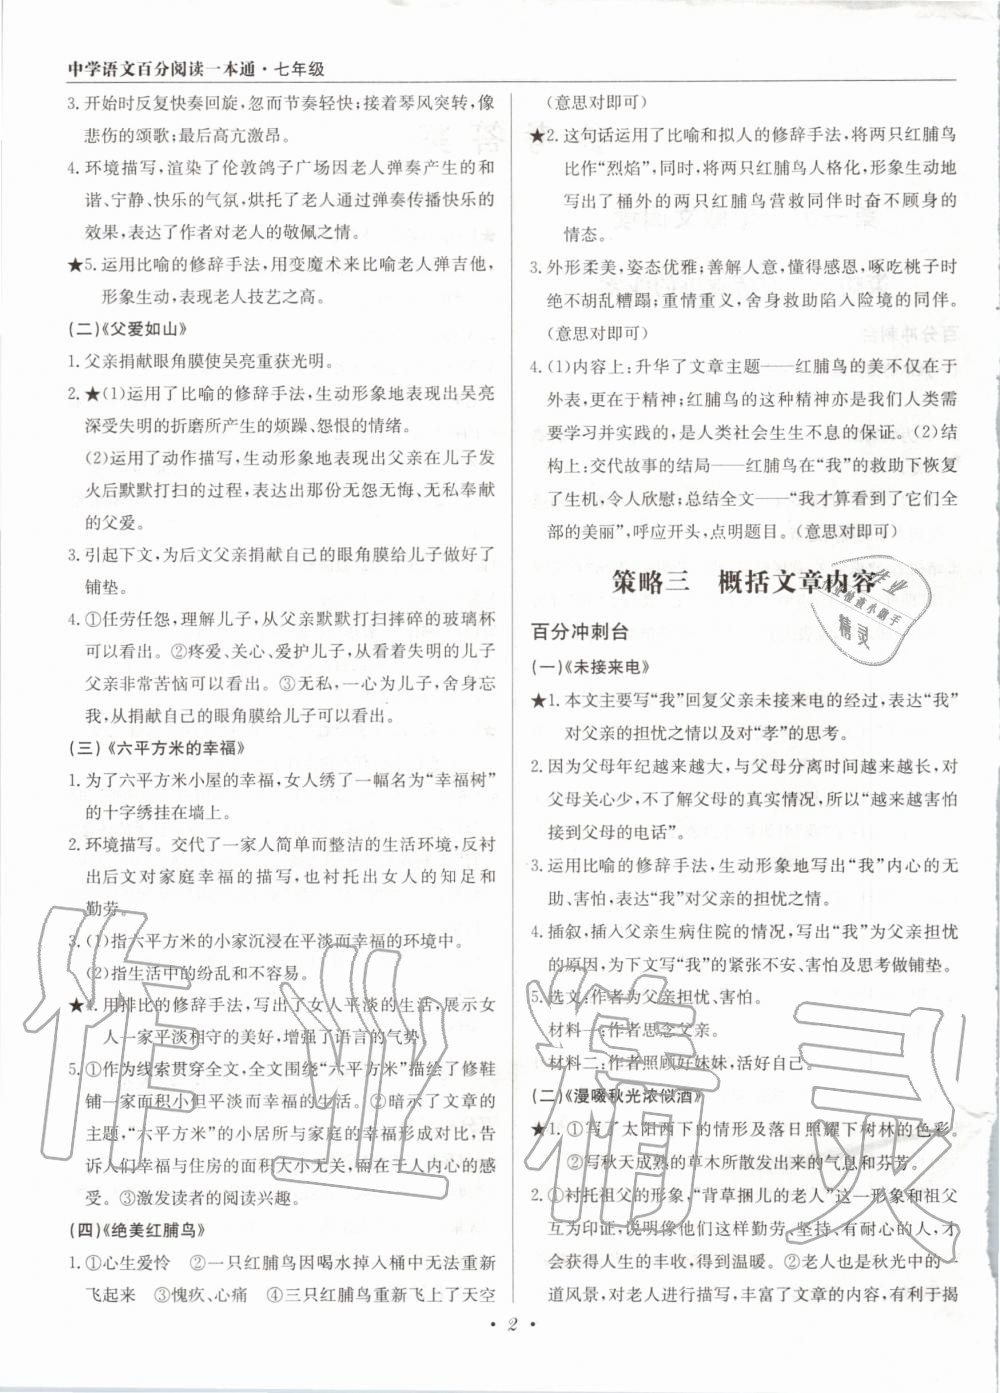 中学语文百分阅读一本通·七年级
3. 开始时反复快奏回旋，忽而节奏轻快；接着琴风突转，像
悲伤的颂歌；最后高亢激昂。
4. 环境描写，渲染了伦敦鸽子广场因老人弹奏产生的和
谐、宁静、快乐的气氛，烘托了老人通过弹奏传播快乐的
效果，表达了作者对老人的敬佩之情。
★5. 运用比喻的修辞手法，用变魔术来比喻老人弹吉他，
形象生动，表现老人技艺之高。
(二)《父爱如山》
1. 父亲捐献眼角膜使吴亮重获光明。
2. ★(1)运用了比喻的修辞手法，生动形象地表现出吴亮
深受失明的折磨所产生的烦躁、怨恨的情绪。
(2)运用了动作描写，生动形象地表现出父亲在儿子发
火后默默打扫的过程，表达出那份无怨无悔、无私奉献
的父爱。
3. 引起下文，为后文父亲捐献自己的眼角膜给儿子做好了
铺垫。
4. ①任劳任怨，理解儿子，从父亲默默打扫摔碎的玻璃杯
可以看出。②疼爱、关心、爱护儿子，从看着失明的儿子
父亲非常苦恼可以看出。③无私，一心为儿子，舍身忘
我，从捐献自己的眼角膜给儿子可以看出。
(三)《六平方米的幸福》
1. 为了六平方米小屋的幸福，女人绣了一幅名为“幸福树”
的十字绣挂在墙上。
2. 环境描写。交代了一家人简单而整洁的生活环境，反衬
出后文对家庭幸福的描写，也衬托出女人的知足和
勤劳。
3. (1)指六平方米的小家沉浸在平淡而幸福的环境中。
(2)指生活中的纷乱和不容易。
★4. 用排比的修辞手法，写出了女人平淡的生活，展示女
人一家平淡相守的美好，增强了语言的气势。
5. ①作为线索贯穿全文，全文围绕“六平方米”描绘了修鞋
铺一家面积小但平淡而幸福的生活。②暗示了文章的
主题，“六平方米”的小居所与家庭的幸福形成对比，告
诉人们幸福与住房的面积大小无关，而在人内心的感
受。③激发读者的阅读兴趣。
(四)《绝美红脯鸟》
1. ①心生爱怜　②一只红脯鸟因喝水掉入桶中无法重新
飞起来　③愧疚、心痛　④三只红脯鸟重新飞上了天空
(意思对即可)
★2. 这句话运用了比喻和拟人的修辞手法，将两只红脯鸟
比作“烈焰”，同时，将两只红脯鸟人格化，形象生动地
写出了桶外的两只红脯鸟营救同伴时奋不顾身的
情态。
3. 外形柔美，姿态优雅；善解人意，懂得感恩，啄吃桃子时
绝不胡乱糟蹋；重情重义，舍身救助陷入险境的同伴。
(意思对即可)
4. (1)内容上：升华了文章主题——红脯鸟的美不仅在于
外表，更在于精神；红脯鸟的这种精神亦是我们人类需
要学习并实践的，是人类社会生生不息的保证。(2)结
构上：交代故事的结局——红脯鸟在“我”的救助下恢复
了生机，令人欣慰；总结全文——“我才算看到了它们全
部的美丽”，呼应开头，点明题目。(意思对即可)
策略三　概括文章内容
百分冲刺台
(一)《未接来电》
★1. 本文主要写“我”回复父亲未接来电的经过，表达“我”
对父亲的担忧之情以及对“孝”的思考。
2. 因为父母年纪越来越大，与父母分离时间越来越长，对
父母关心少，不了解父母的真实情况，所以“越来越害怕
接到父母的电话”。
3. 运用比喻的修辞手法，生动形象地写出“我”内心的无
助、害怕，表现了“我”对父亲的担忧之情。
4. 插叙，插入父亲生病住院的情况，写出“我”为父亲担忧
的原因，为下文写“我”的紧张不安、害怕做铺垫。
5. 选文：作者为父亲担忧、害怕。
材料一：作者思念父亲。
材料二：作者照顾好妹妹，活好自己。
(二)《漫啜秋光浓似酒》
★1. ①写了太阳西下的情形及落日照耀下树林的色彩。
②写秋天成熟的草木所散发出来的气息和芬芳。
2. ①衬托祖父的形象，“背草捆儿的老人”这一形象和祖父
互为印证，说明像他们这样勤劳、坚持、有耐心的人，才
会获得人生的丰收，受人尊敬。②老人也是秋光中的一
道风景，对老人进行描写，丰富了文章的内容，有利于揭
·2·
作业
检查小助手
精灵
作业精灵